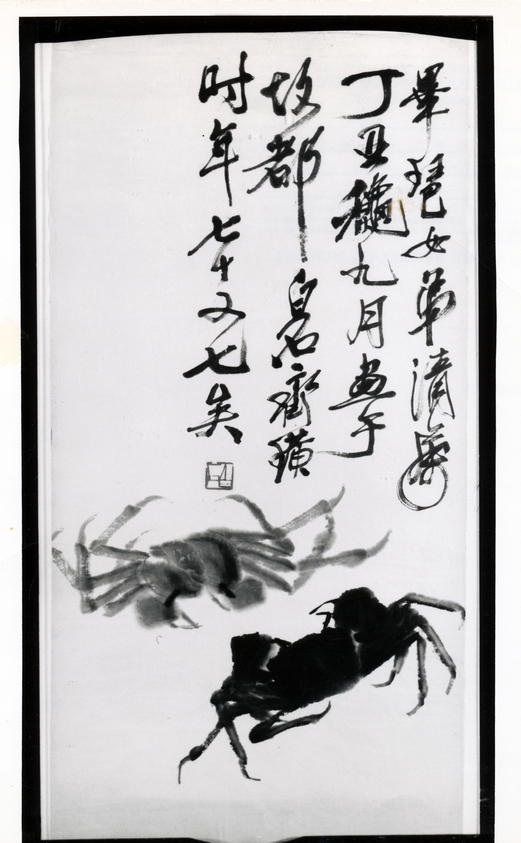 毕琶女弟清属
丁丑秋九月画于
故都 白石齐璜
时年七十又七矣